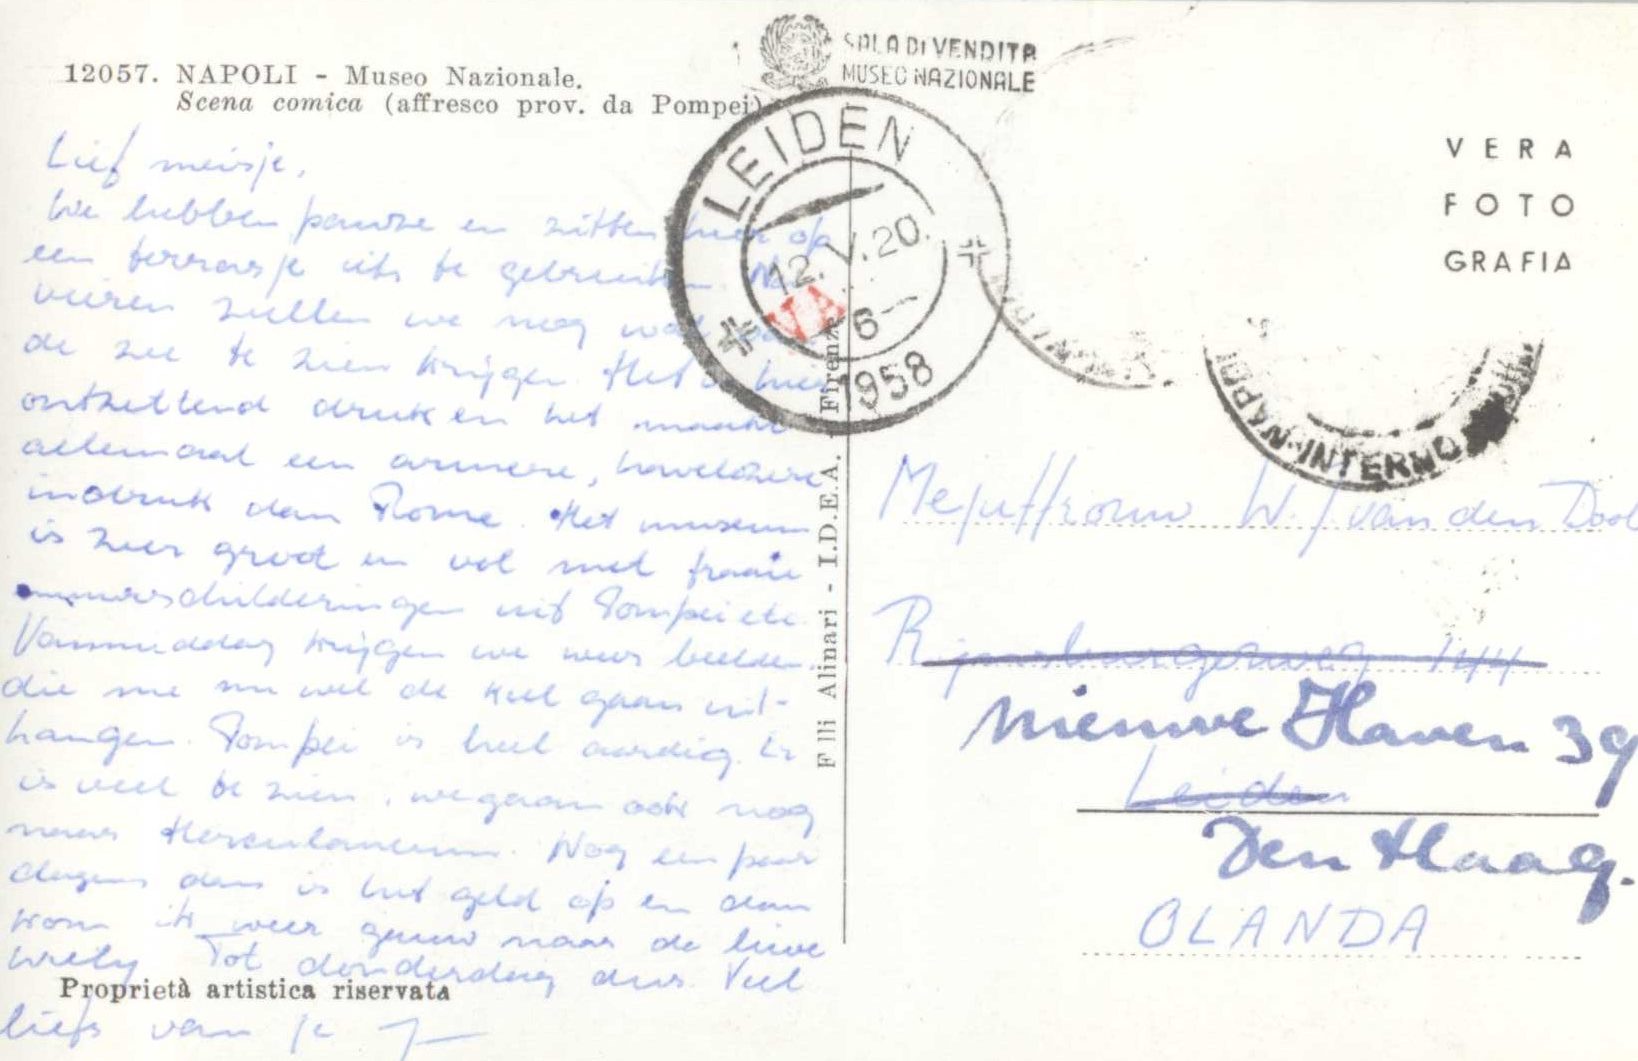 12057. NAPOLI - Museo Nazionale.
Scena comica (affresco prov. da Pompei)
SALA DI VENDITA
MUSEO NAZIONALE
LEIDEN
12.V.20.
6
1958
VERA
FOTO
GRAFIA
NAPOLI-INTERNO
Lief meisje,
We hebben pauze en zitten hier op
een terrasje iets te gebruiken. Na
vieren zullen we nog wat van
de zee te zien krijgen. Het is hier
ontzettend druk en het maakt
allemaal een armere, havelozere
indruk dan Rome. Het museum
is zeer groot en vol met fraaie
muurschilderingen uit Pompei etc.
Vanmiddag krijgen we weer beelden
die me nu wel de keel gaan uit-
hangen. Pompei is heel aardig. Er
is veel te zien, we gaan ook nog
naar Herculaneum. Nog een paar
dagen dan is het geld op en dan
kom ik weer gauw naar de lieve
Willy. Tot donderdag dus. Veel
liefs van je J
Proprietà artistica riservata
F.lli Alinari - I.D.E.A. - Firenze
Mejuffrouw W. J van den Dool
Rijnsburgerweg 144
Nieuwe Haven 39
Leiden
Den Haag.
OLANDA